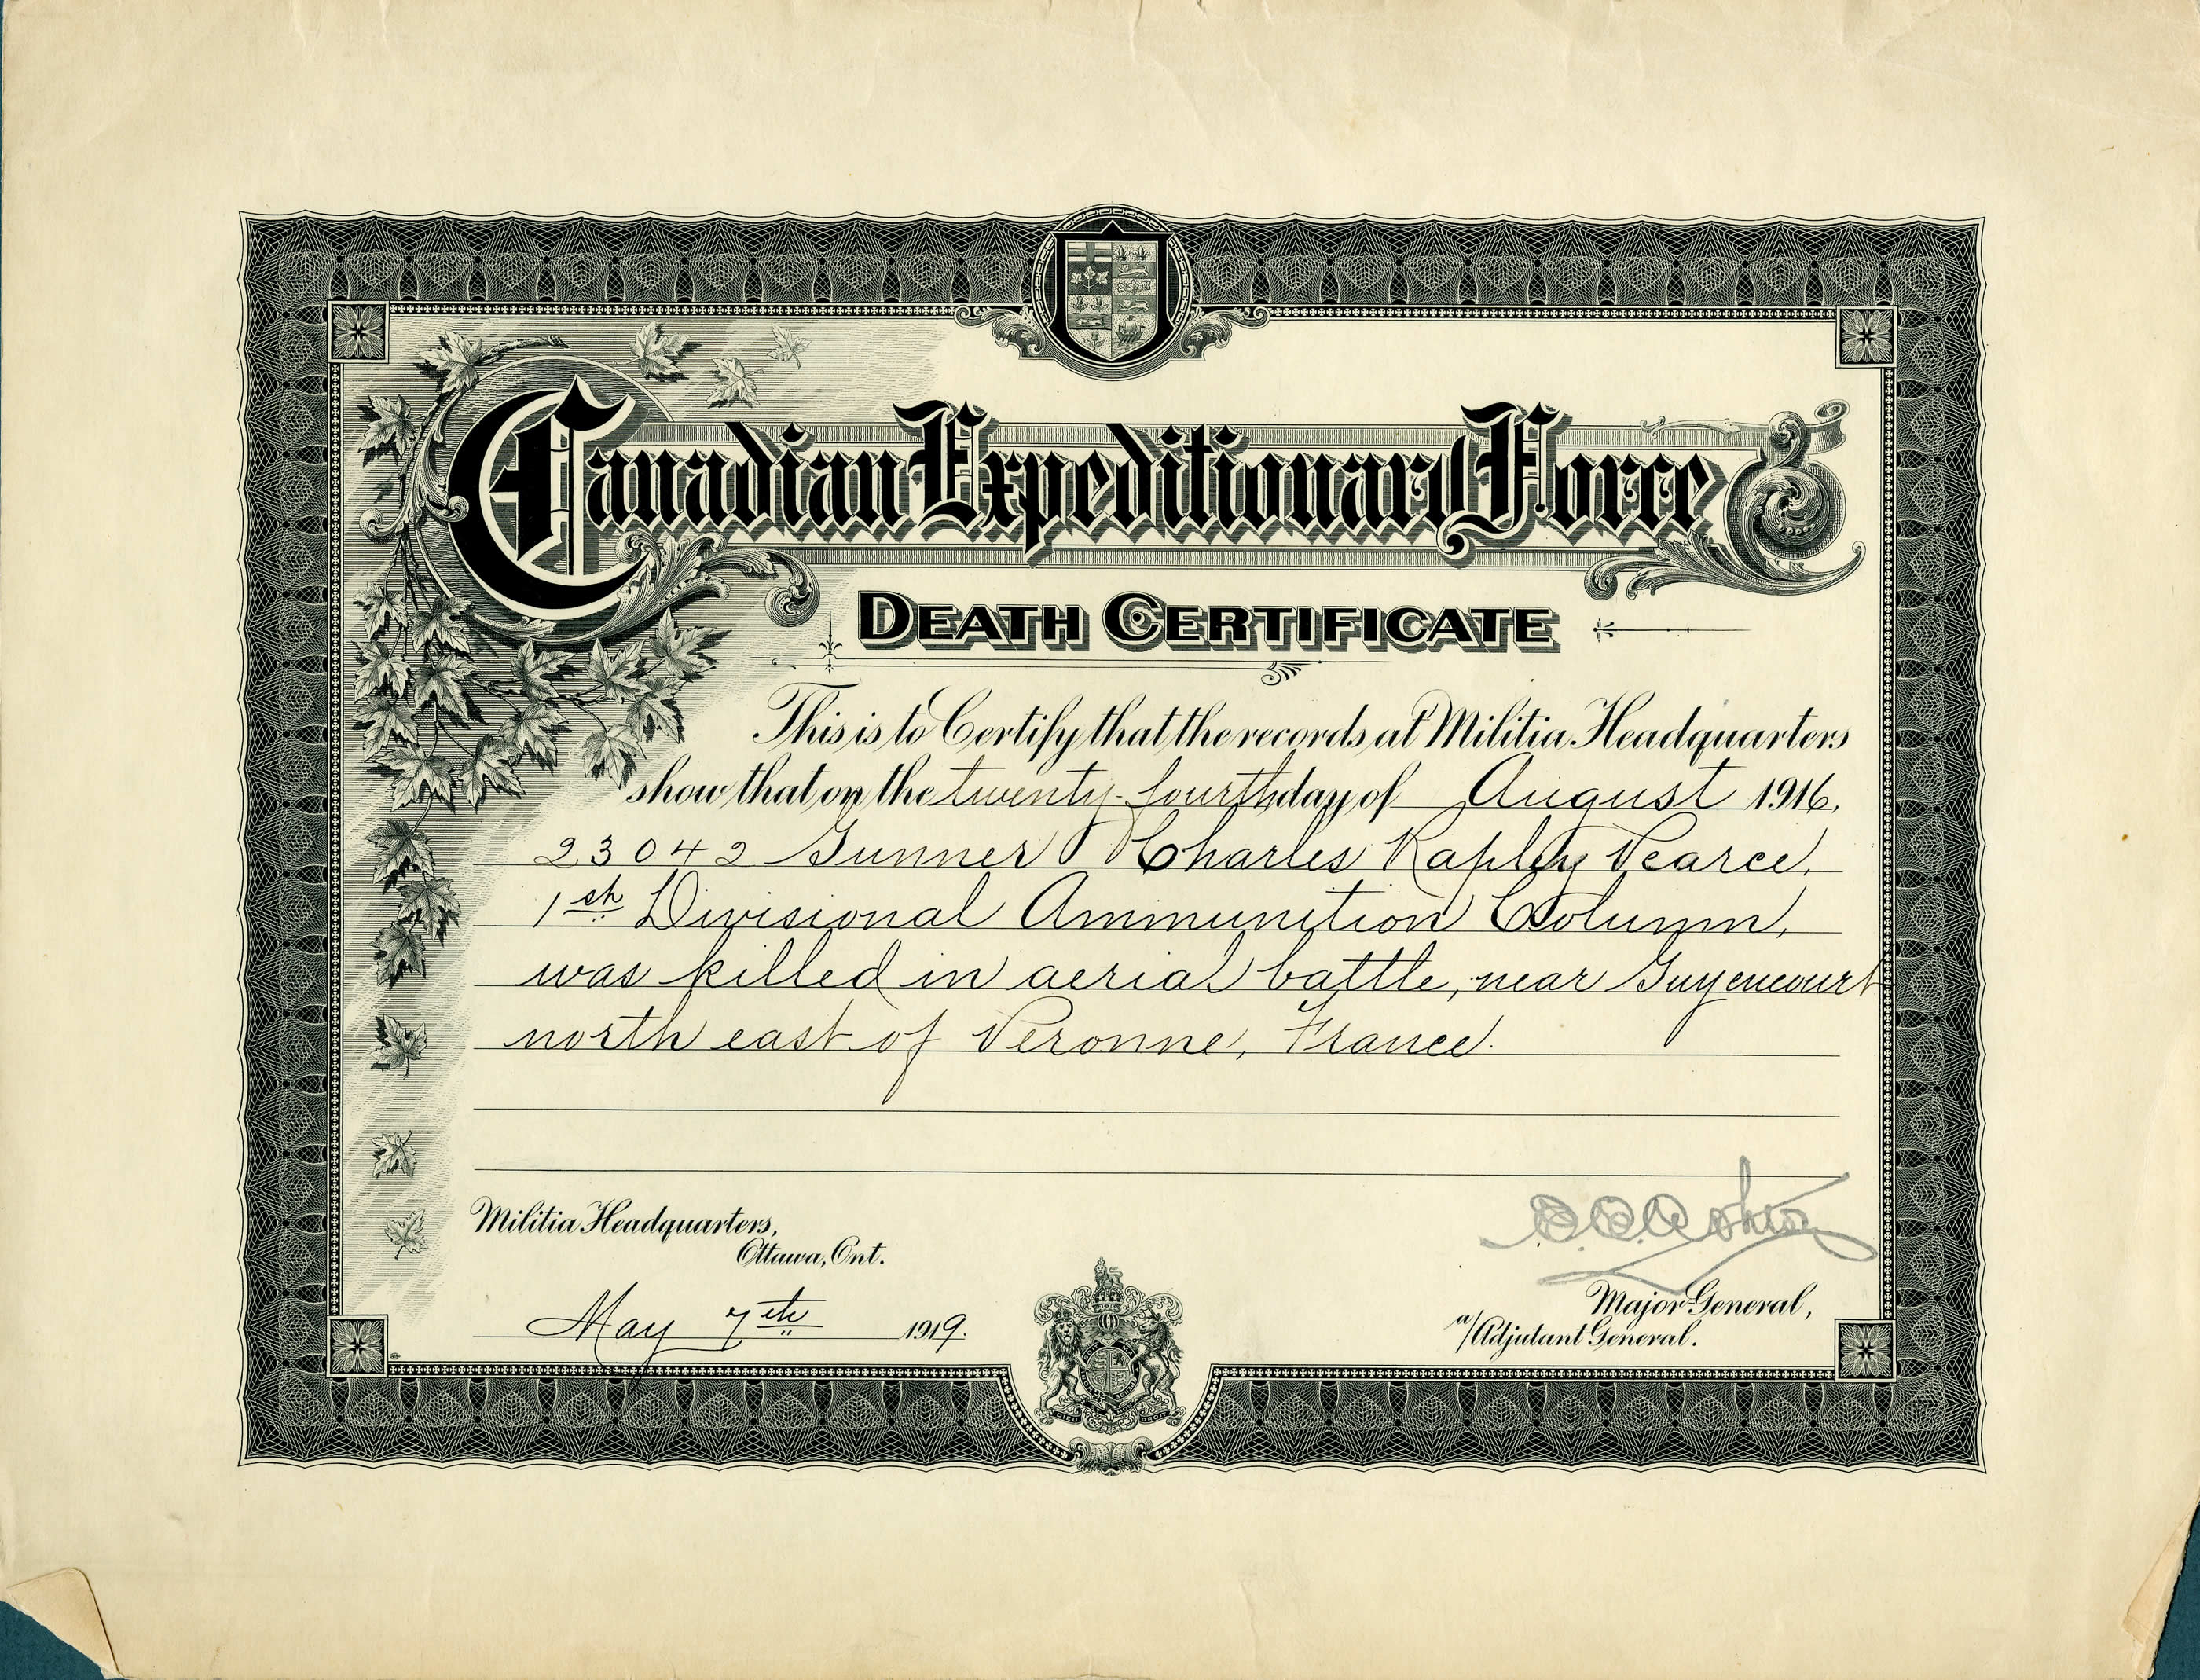 Canadian Expeditionary Force
DEATH CERTIFICATE
This is to Certify that the records at Militia Headquarters
show that on the twenty-fourth day of August 1916,
23042 Gunner Charles Rapley Pearce,
1st Divisional Ammunition Column,
was killed in aerial battle, near Guyencourt
north east of Peronne, France.
Militia Headquarters,
Ottawa, Ont.
May 7th 1919.
Major General,
a/Adjutant General.